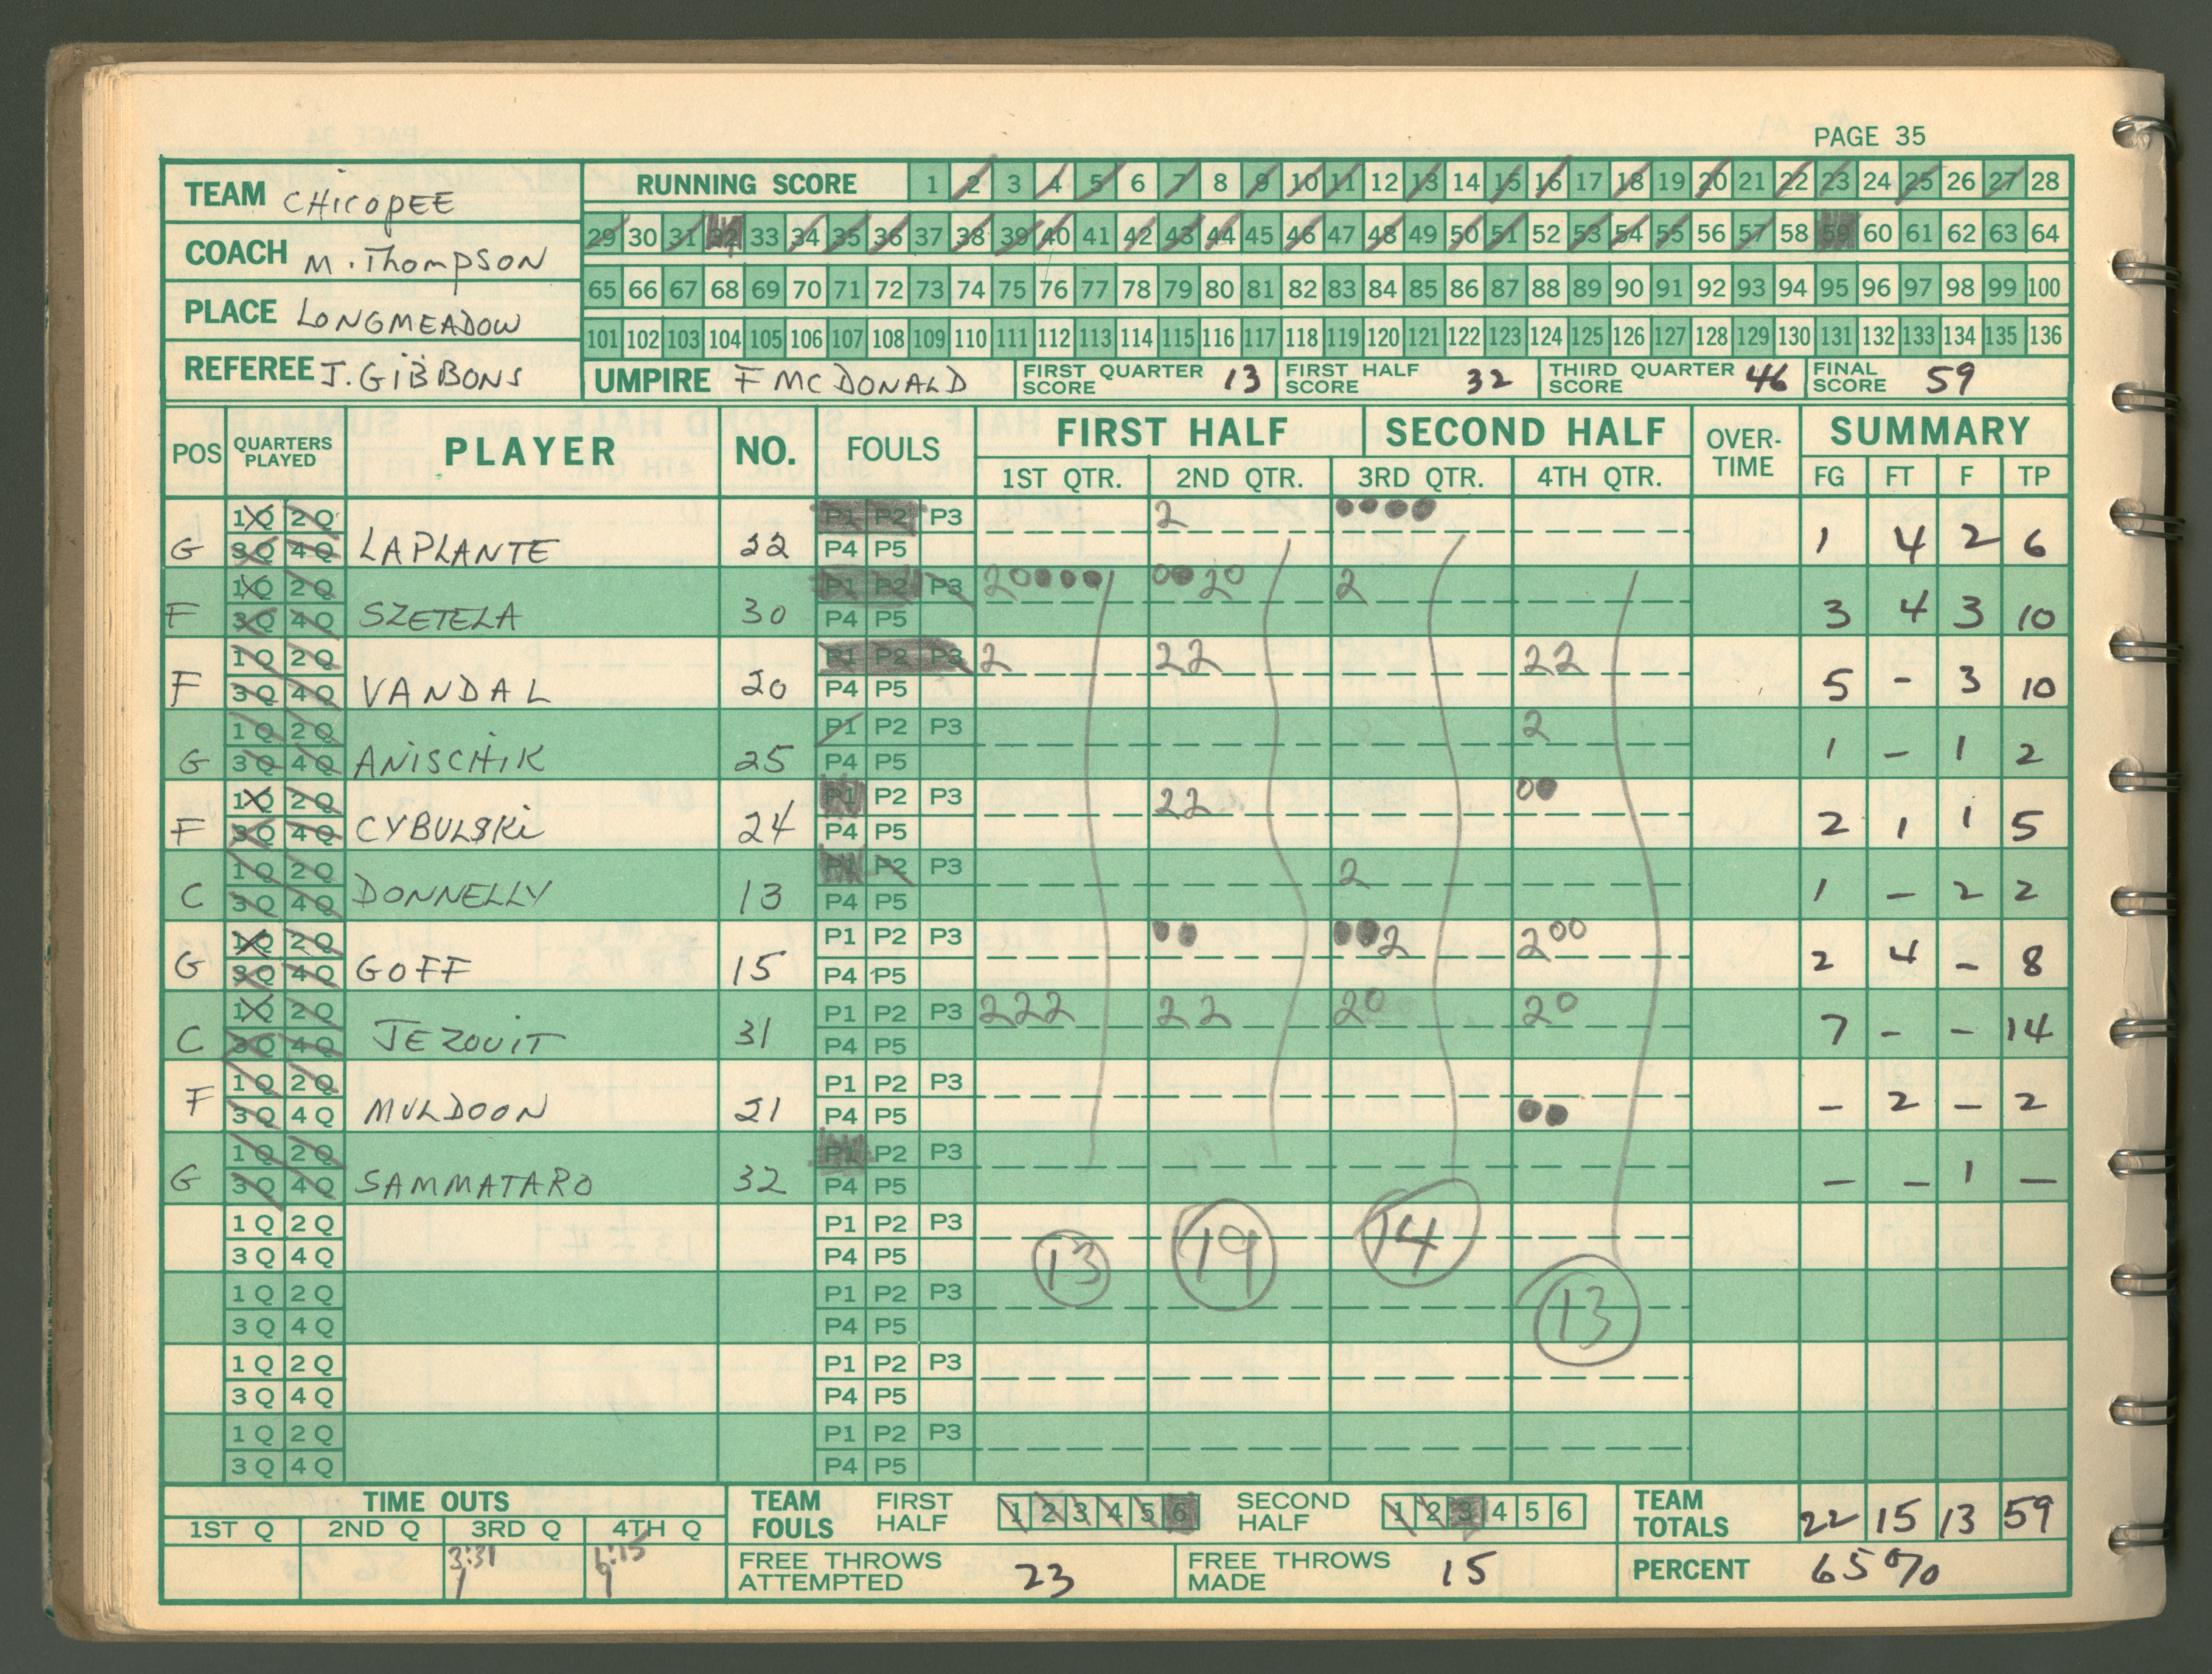 PAGE 35
TEAM CHICOPEE
COACH M. THOMPSON
PLACE LONGMEADOW
REFEREE J. GIBBONS
RUNNING SCORE 1 2 3 4 5 6 7 8 9 10 11 12 13 14 15 16 17 18 19 20 21 22 23 24 25 26 27 28
29 30 31 32 33 34 35 36 37 38 39 40 41 42 43 44 45 46 47 48 49 50 51 52 53 54 55 56 57 58 59 60 61 62 63 64
65 66 67 68 69 70 71 72 73 74 75 76 77 78 79 80 81 82 83 84 85 86 87 88 89 90 91 92 93 94 95 96 97 98 99 100
101 102 103 104 105 106 107 108 109 110 111 112 113 114 115 116 117 118 119 120 121 122 123 124 125 126 127 128 129 130 131 132 133 134 135 136
UMPIRE F MCDONALD FIRST QUARTER SCORE 13 FIRST HALF SCORE 32 THIRD QUARTER SCORE 46 FINAL SCORE 59
POS QUARTERS PLAYED PLAYER NO. FOULS FIRST HALF SECOND HALF OVER-TIME SUMMARY
1ST QTR. 2ND QTR. 3RD QTR. 4TH QTR. FG FT F TP
1Q 2Q P1 P2 P3 2
G 3Q 4Q LAPLANTE 22 P4 P5 1 4 2 6
1Q 2Q P1 P2 P3 2 0 0 0 2 0 2
F 3Q 4Q SZETELA 30 P4 P5 3 4 3 10
1Q 2Q P1 P2 P3 2 2 2 2 2
F 3Q 4Q VANDAL 20 P4 P5 5 - 3 10
1Q 2Q P1 P2 P3 2
G 3Q 4Q ANISCHIK 25 P4 P5 1 - 1 2
1Q 2Q P1 P2 P3 2 2 0
F 3Q 4Q CYBULSKI 24 P4 P5 2 1 1 5
1Q 2Q P1 P2 P3 2
C 3Q 4Q DONNELLY 13 P4 P5 1 - 2 2
1Q 2Q P1 P2 P3 2 2 0 0
G 3Q 4Q GOFF 15 P4 P5 2 4 - 8
1Q 2Q P1 P2 P3 2 2 2 2 2 2 0 2 0
C 3Q 4Q JEZOUIT 31 P4 P5 7 - - 14
1Q 2Q P1 P2 P3
F 3Q 4Q MULDOON 21 P4 P5 - 2 - 2
1Q 2Q P1 P2 P3
G 3Q 4Q SAMMATARO 32 P4 P5 - - 1 -
1Q 2Q P1 P2 P3
3Q 4Q P4 P5 13 19 14
1Q 2Q P1 P2 P3
3Q 4Q P4 P5 13
1Q 2Q P1 P2 P3
3Q 4Q P4 P5
1Q 2Q P1 P2 P3
3Q 4Q P4 P5
TIME OUTS
1ST Q 2ND Q 3RD Q 4TH Q
3:31 6:15
TEAM FOULS FIRST HALF 1 2 3 4 5 6 SECOND HALF 1 2 3 4 5 6
TEAM TOTALS 22 15 13 59
FREE THROWS ATTEMPTED 23 FREE THROWS MADE 15 PERCENT 65%